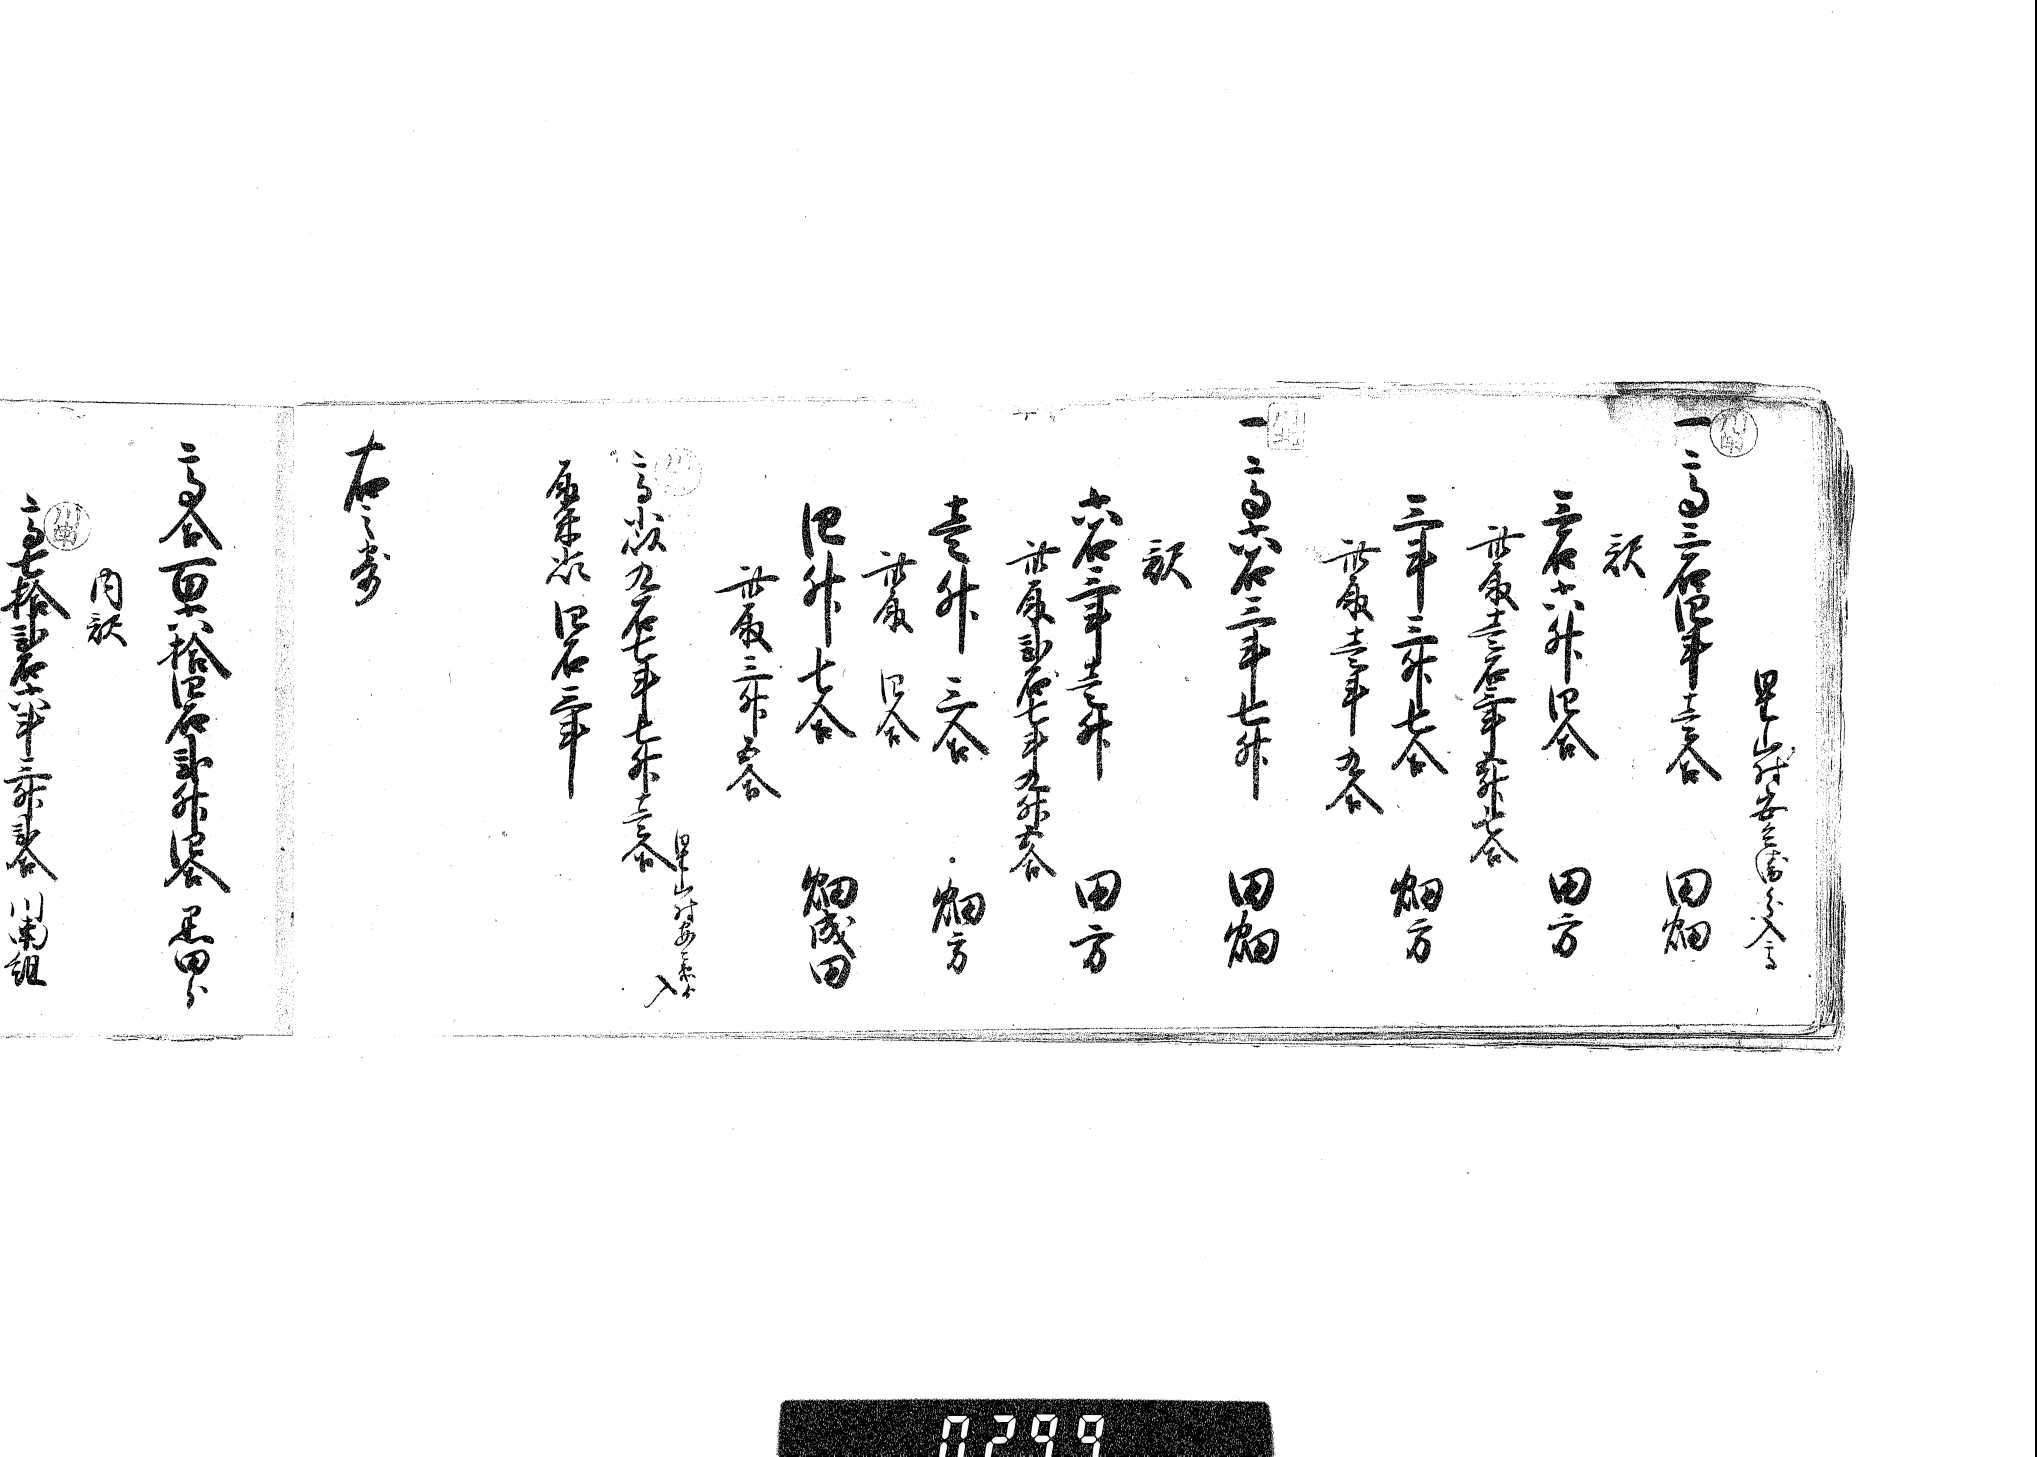 黒山村安兵衛分入高
川南
一高三石四斗壱合 田畑
訳
三石六升四合 田方
此取壱石三斗五升七合
三斗三升七合 畑方
此取壱斗九合
一高六石三斗七升 田畑
訳
六石三斗壱升 田方
此取弐石七斗九升六合
壱升三合 畑方
此取四合
四升七合 畑成田
此取三升五合
高小以九石七斗七升壱合
入
取米小以四石三斗
右之寄
高合百六拾四石弐升四合 黒田分
内訳
川南
高七拾弐石六斗三升弐合 川南組
0299